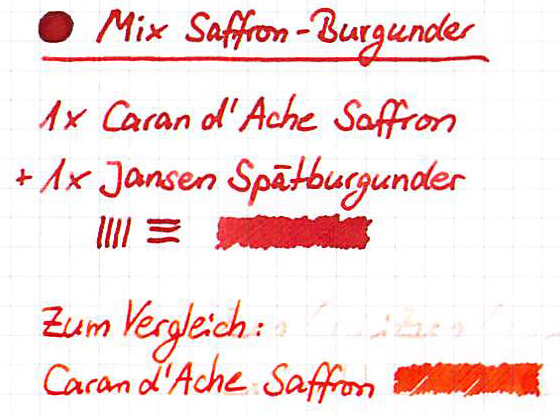 Mix Saffron-Burgunder
1x Caran d'Ache Saffron
+ 1x Jansen Spätburgunder
Zum Vergleich:
Caran d'Ache Saffron